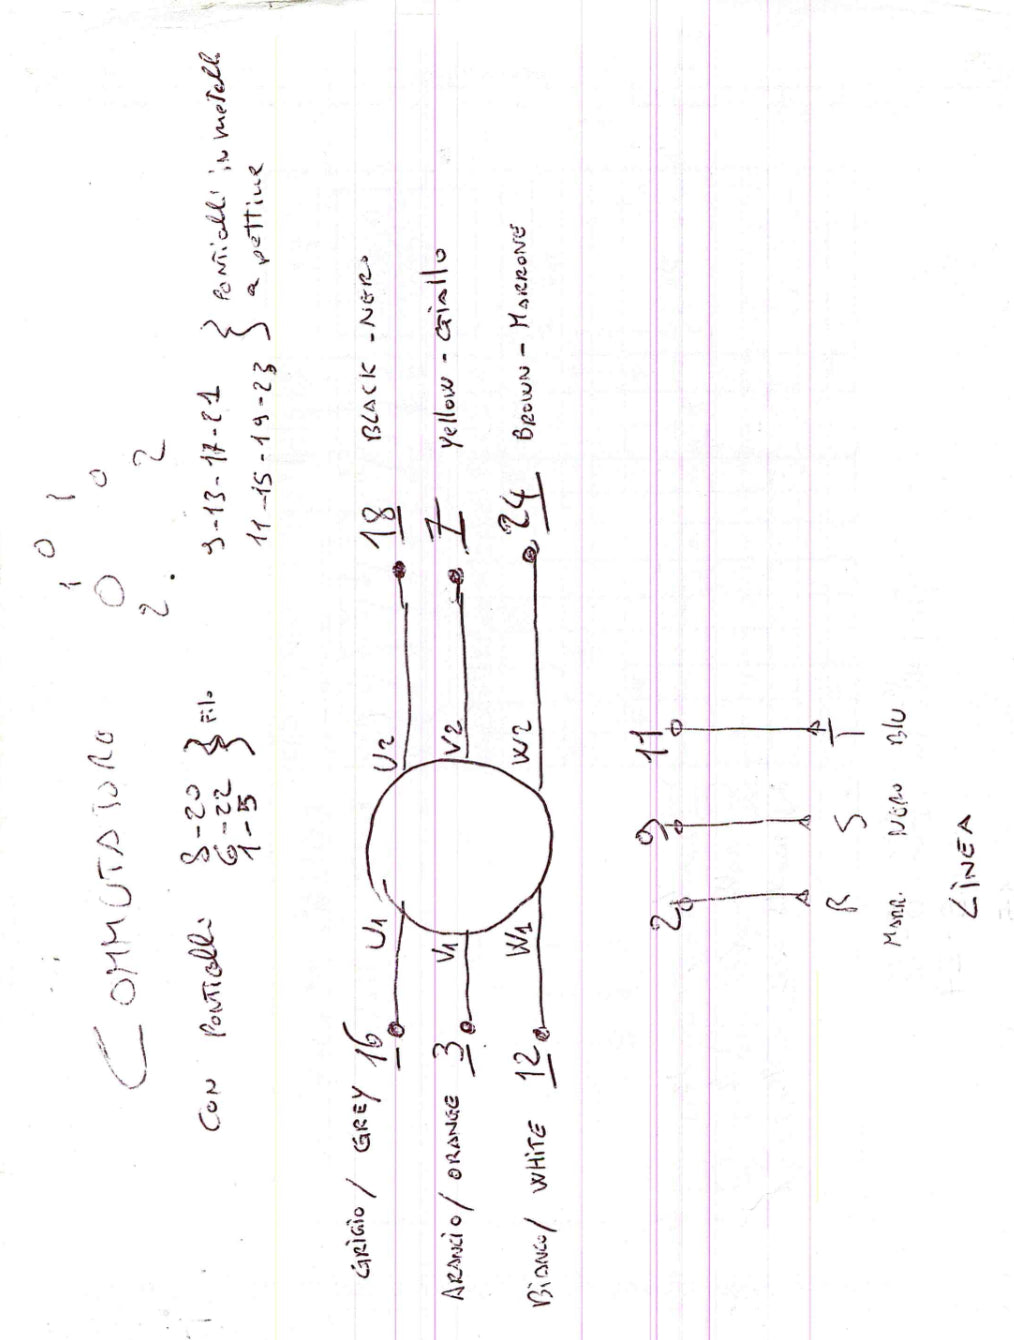 COMMUTATORE
1 0 1
0 0
2 2
CON PONTICELLI 8-20
6-22
1-5
} FILO
9-13-17-21
11-15-19-23
} PONTICELLI IN METALLO
a pettine
GRIGIO / GREY 16 U1 U2 18 BLACK - NERO
ARANCIO / ORANGE 3 V1 V2 7 yellow - GiAllo
BIANCO / WHITE 12 W1 W2 24 BROWN - MARRONE
2 9 11
R S T
MARR. NERO BLU
LINEA